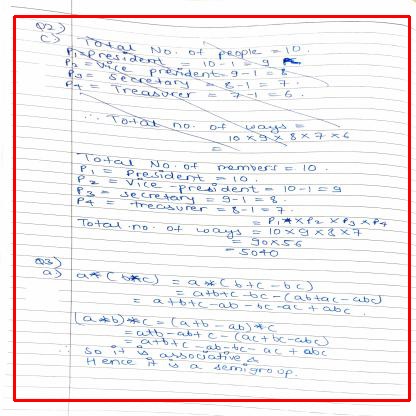 Q2)
c) Total No. of people = 10.
P1 = President = 10-1 = 9
P2 = Vice president = 9-1 = 8
P3 = Secretary = 8-1 = 7.
P4 = Treasurer = 7-1 = 6.
∴ Total no. of ways =
10 × 9 × 8 × 7 × 6
=
Total No. of members = 10.
P1 = President = 10.
P2 = Vice-president = 10-1 = 9
P3 = Secretary = 9-1 = 8.
P4 = treasurer = 8-1 = 7.
= P1 × P2 × P3 × P4
Total no. of ways = 10 × 9 × 8 × 7
= 90 × 56
= 5040
Q3)
a) a*(b*c) = a*(b+c-bc)
= a+b+c-bc-(ab+ac-abc)
= a+b+c-ab-bc-ac+abc.
(a*b)*c = (a+b-ab)*c
= a+b-ab+c-(ac+bc-abc)
= a+b+c-ab-bc-ac+abc
So it is associative &
Hence it is a semigroup.